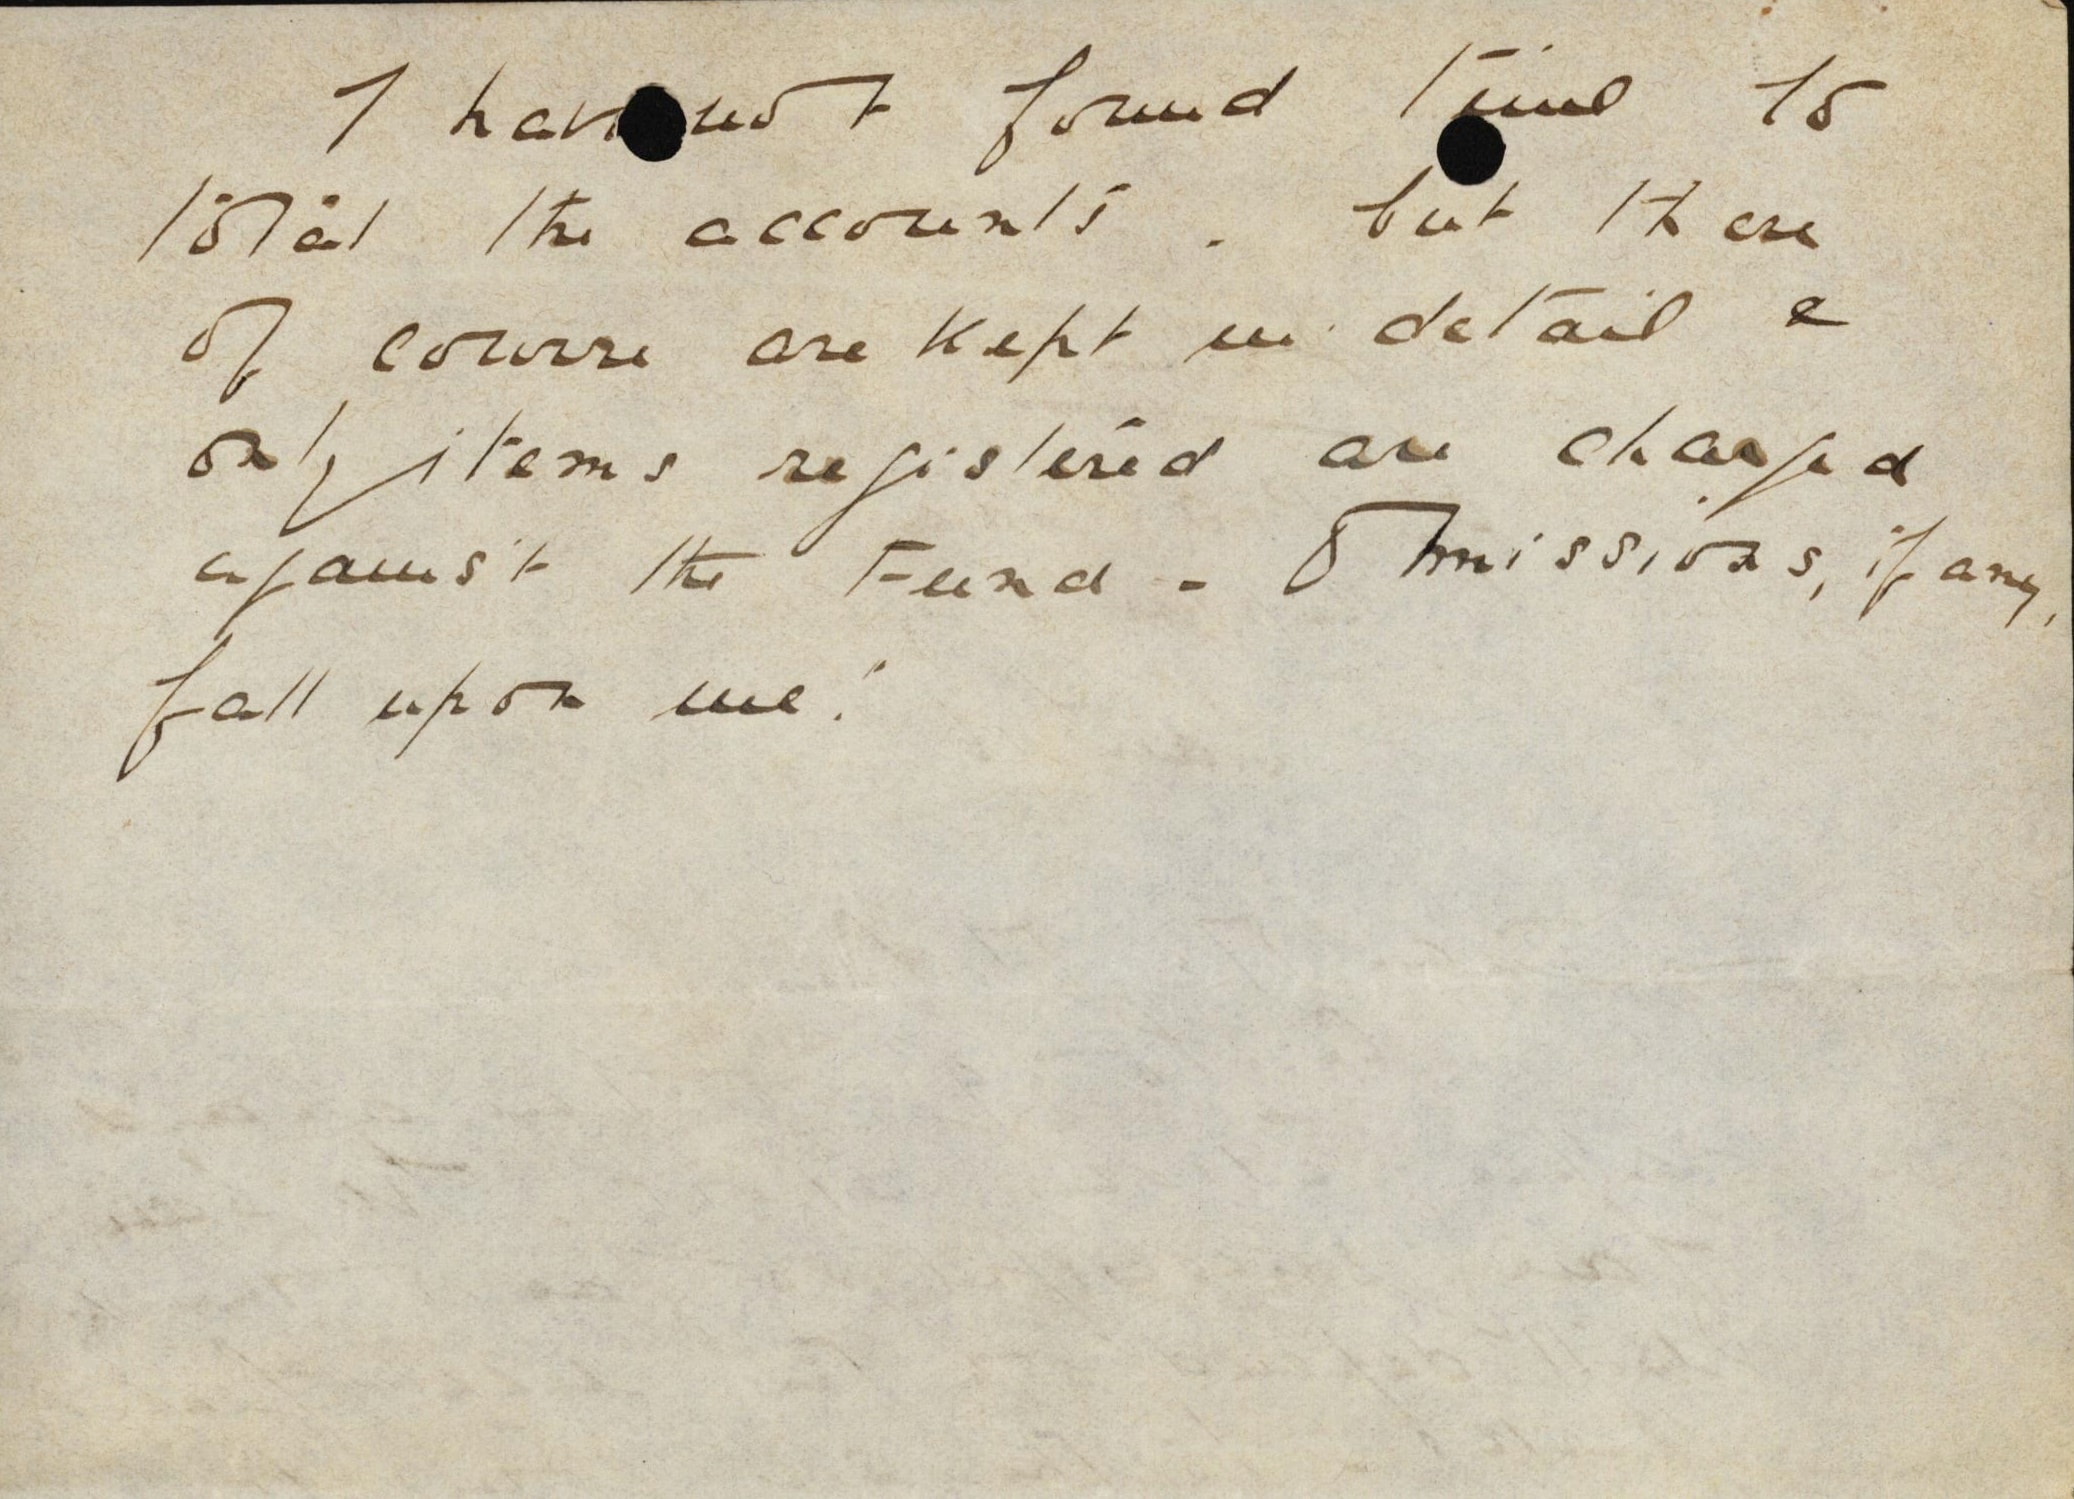 I have not found time to
total the accounts. but these
of course are kept in detail &
only items registered are charged
against the Fund - Omissions, if any,
fall upon me!